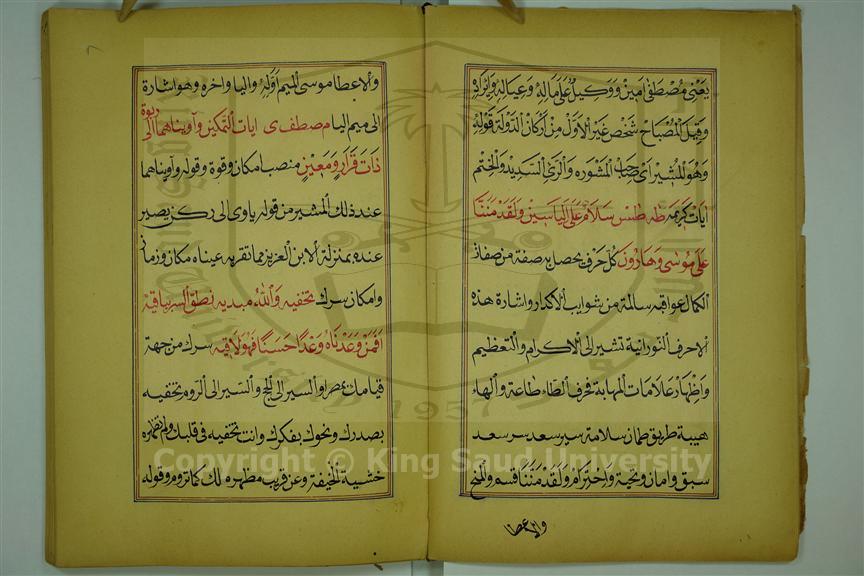 يعني مصطفى امين ووكيل على ماله وعياله واتراه
وقيل المصباح شخص غير الاول من اركان الدولة قوله
وهو المشير اي صاحب المشوره والرأي السديد والختم
ايات كريمه طه طس سلام على الياسين ولقد مننا
على موسى وهارون كل حرف يحصل به صفة من صفات
الكمال عواقبه سالمة من شوايب الاكدار واشارة هذه
الاحرف النورانية تشير الى الاكرام والتعظيم
واظهار علامات المهابة فحرف الطاء طاعة والهاء
هيبة طريق طمان سلامة سير سعد سر سعد
سبق وامان وتحية واحترام ولقد مننا قسم والمنح
والاعطا
والاعطا موسى الميم اوله واليا واخره وهو اشارة
الى ميم ليا مصطفى ايات التمكين وآويناهما الى ربوة
ذات قرار ومعين منصب امكان وقوة وقوله وآويناهما
عند ذلك المشير من قوله ياوى الى ركن يصير
عنده بمنزلة الابن العزيز مما تقر به عيناه مكان وزمان
وامكان سرك تخفيه والله مبديه نطق السرياقية
افمن وعدناه وعدا حسنا فهو لاقيه سرك من جهة
قيامك بمصر او السير الى الحج والسير الى الروم تخفيه
بصدرك ونحوك بفكرك وانت تخفيه في قلبك ولم تظهره
خشية الخيفة وعن قريب مظهره لك كما تروم وقوله
Copyright © King Saud University
1957